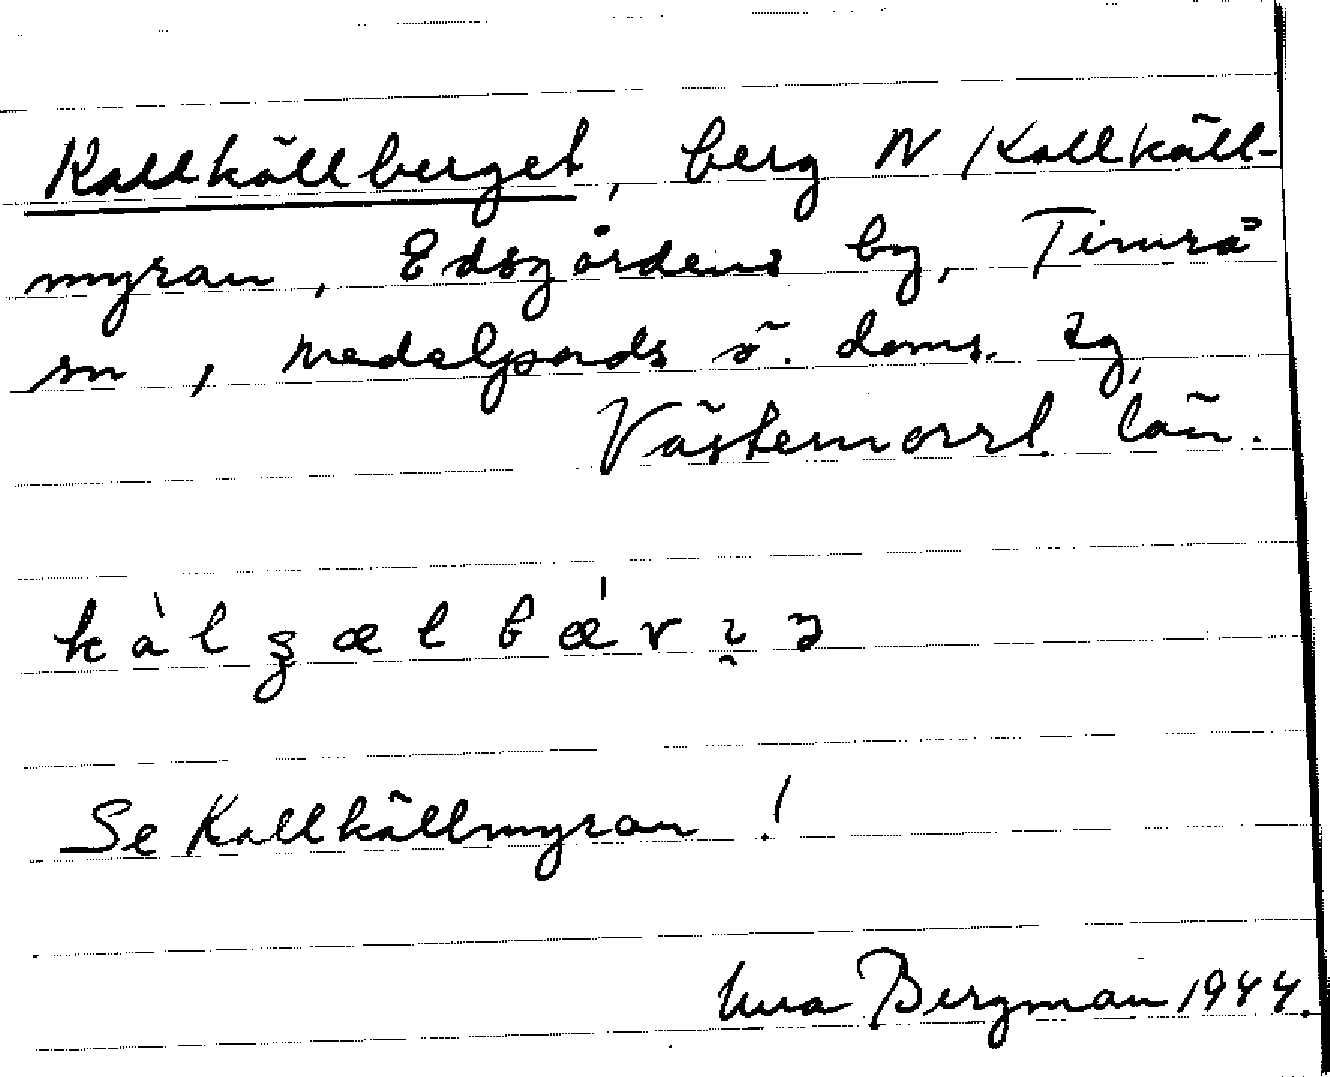 Kallkällberget, berg N Kallkäll-
myran, Edsgårdens by, Timrå
sn, Medelpads ö. doms. tg,
Västernorrl. län.
k à l ʂ æ l b ǽ r ɂ ə
Se Kallkällmyran!
Bergman 1944.